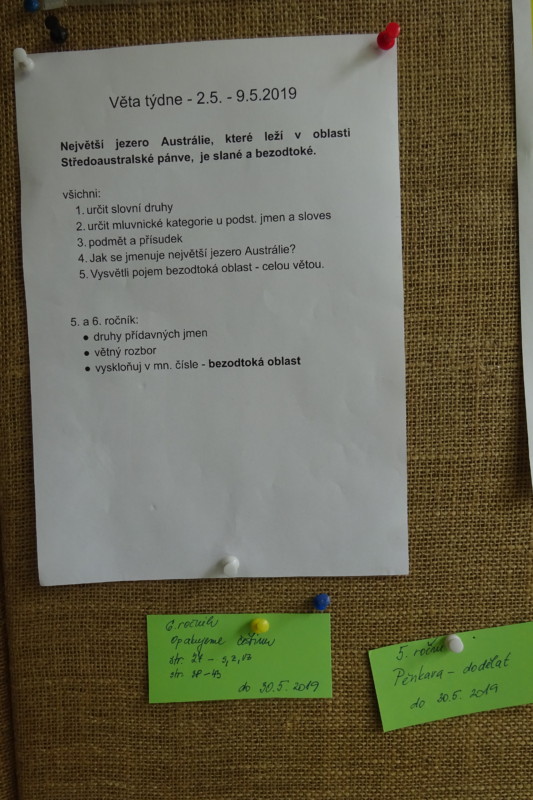 Věta týdne - 2.5. - 9.5.2019
Největší jezero Austrálie, které leží v oblasti
Středoaustralské pánve, je slané a bezodtoké.
všichni:
1. určit slovní druhy
2. určit mluvnické kategorie u podst. jmen a sloves
3. podmět a přísudek
4. Jak se jmenuje největší jezero Austrálie?
5. Vysvětli pojem bezodtoká oblast - celou větou.
5. a 6. ročník:
● druhy přídavných jmen
● větný rozbor
● vyskloňuj v mn. čísle - bezodtoká oblast
6. ročník
Opakujeme češtinu
str.
str.
do 30.5. 2019
5. ročník
Pěnkava - dodělat
do 30.5. 2019